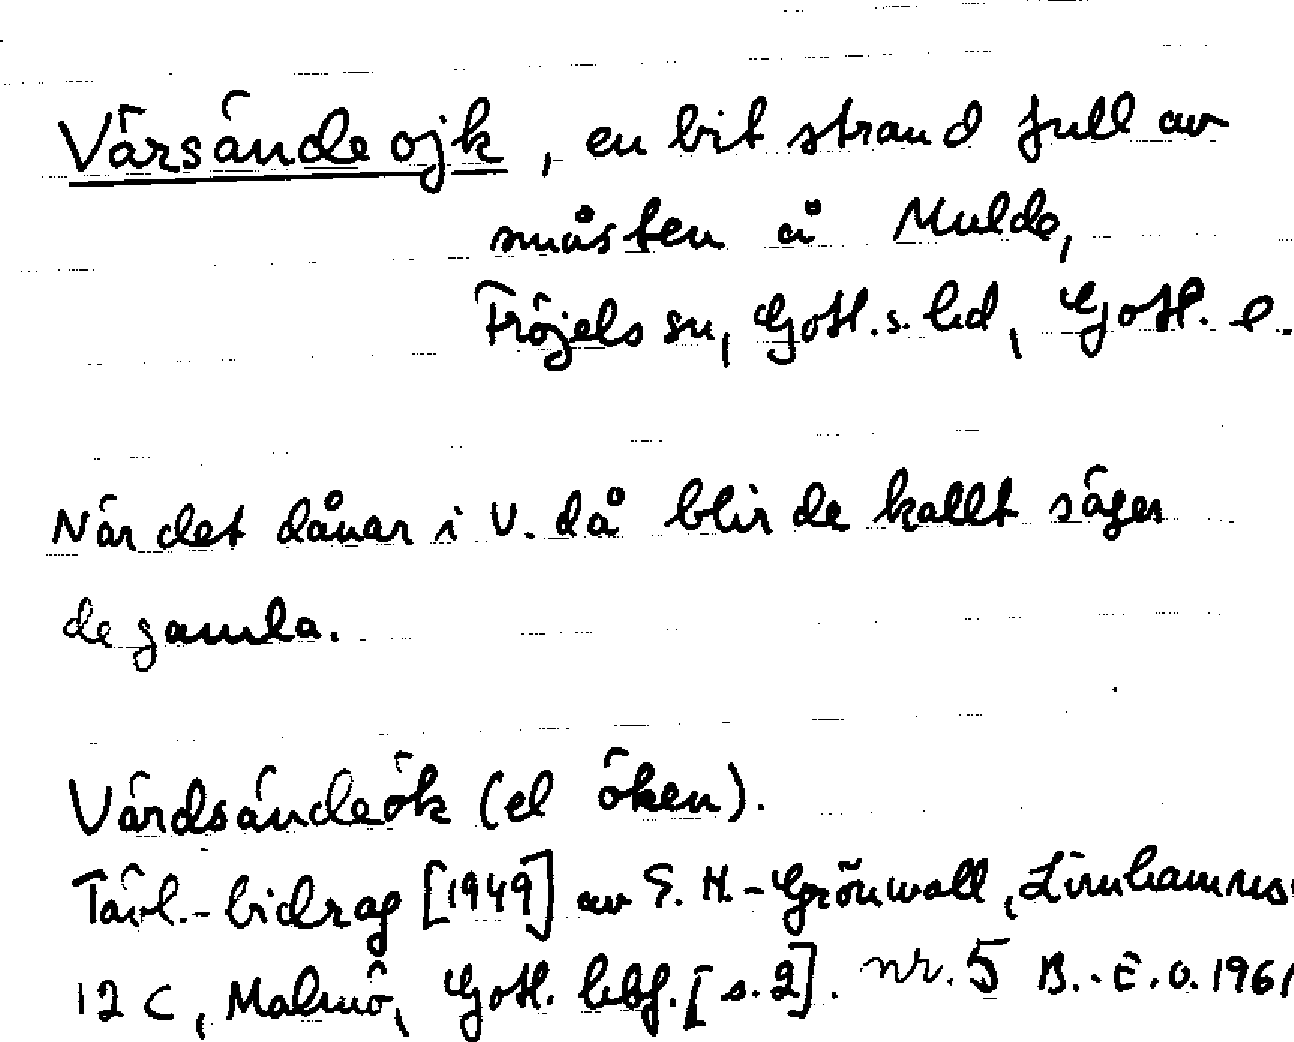 Värsändeojk, en bit strand full av
småsten å Mulde,
Fröjels sn, Gotl.s. hd, Gotl. l.
När det dånar i V. då blir de kallt säger
de gamla.
Värdsändeök (el öken).
Tävl.-bidrag [1949] av E. H.-Grönwall, Limhamns
12 C, Malmö, Gotl. [s. 2]. nr. 5 B.-E.O. 1961